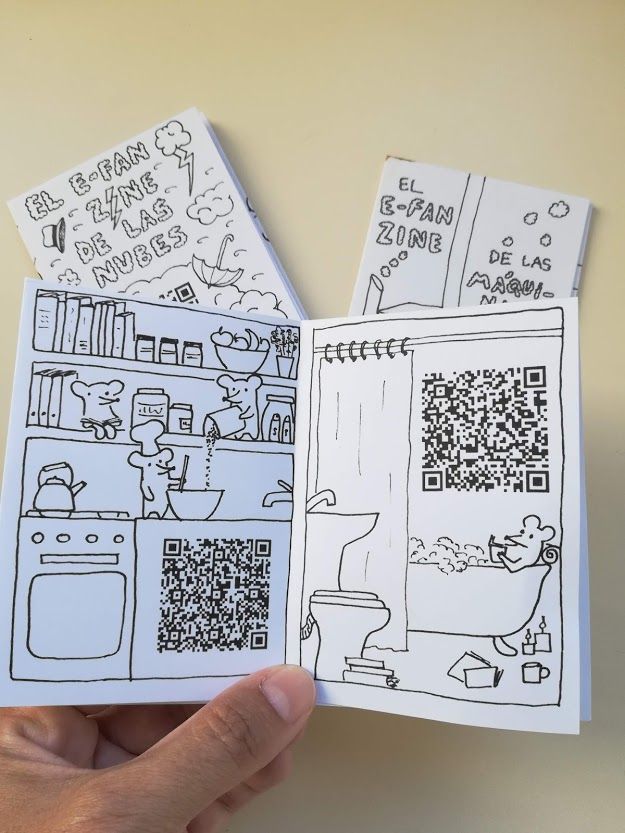 EL E-FAN
ZINE
DE LAS
NUBES
EL
E-FAN
ZINE
DE LAS
MÁQUI-